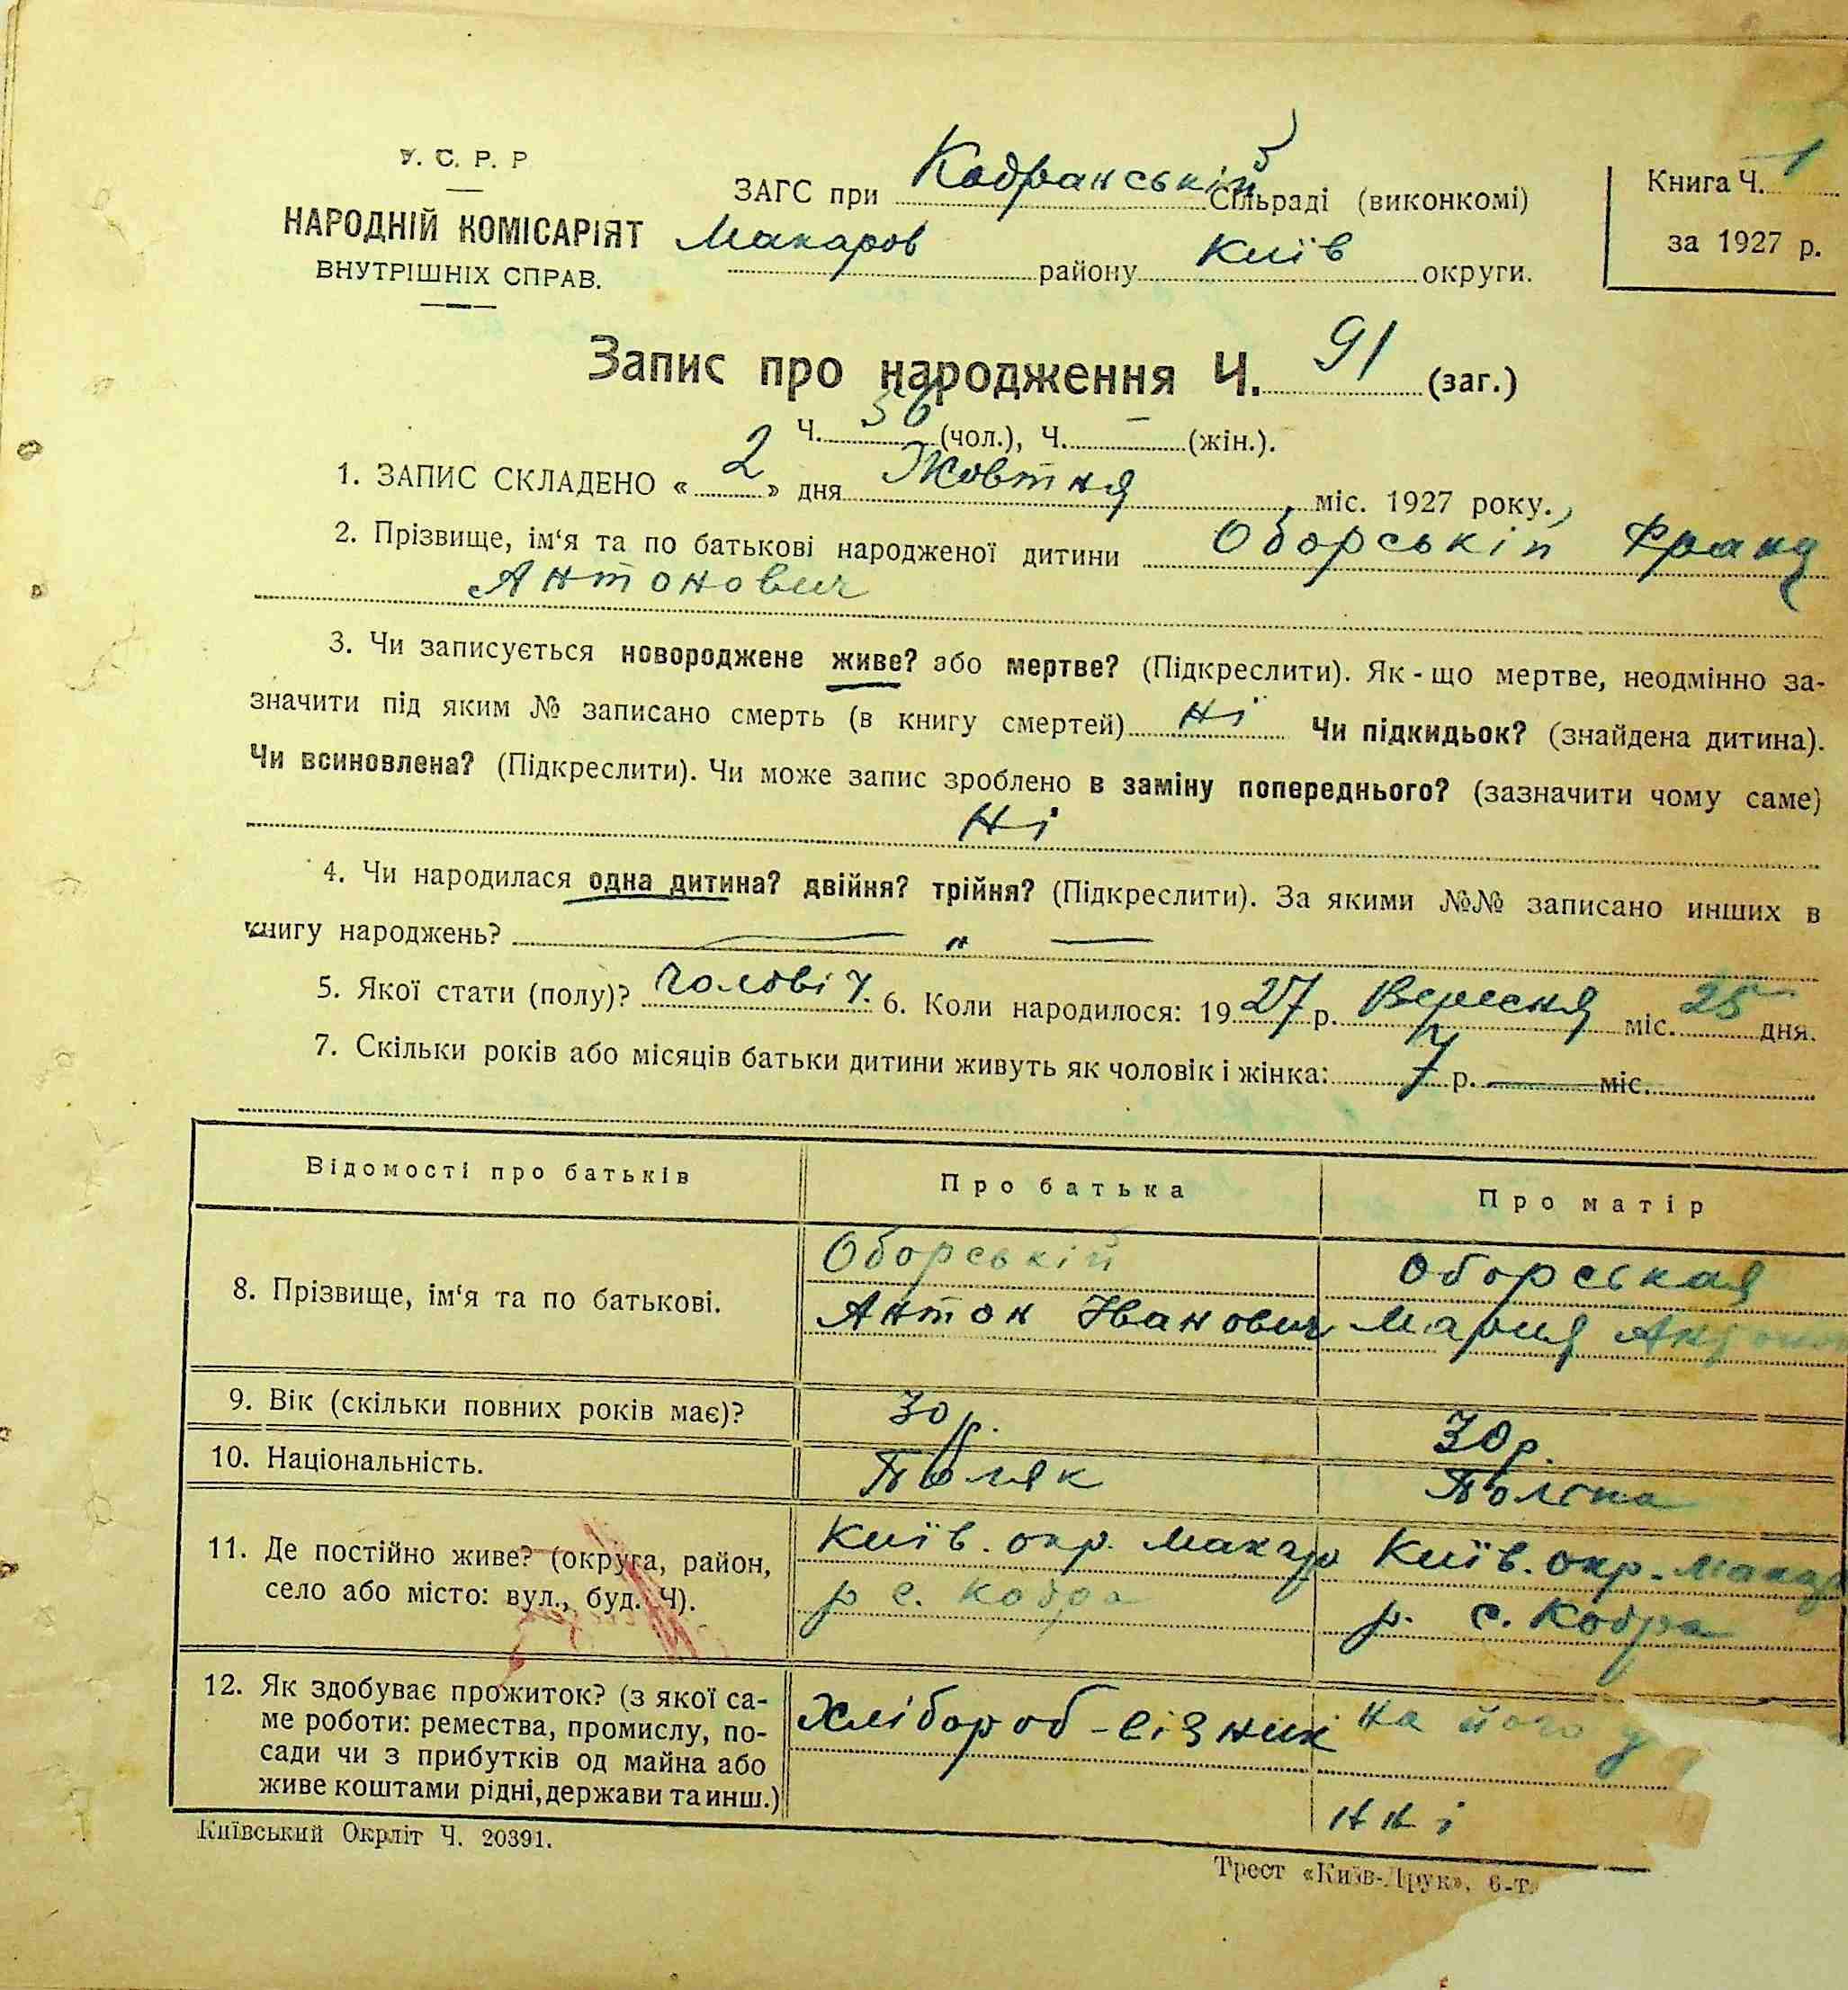 У. С. Р. Р
НАРОДНІЙ КОМІСАРІЯТ
ВНУТРІШНІХ СПРАВ.
ЗАГС при Кодранській Сільраді (виконкомі)
Макаров району Київ округи.
Книга Ч. 1
за 1927 р.
Запис про народження Ч. 91 (заг.)
Ч. 56 (чол.), Ч. — (жін.).
1. ЗАПИС СКЛАДЕНО « 2 » дня Жовтня міс. 1927 року.
2. Прізвище, ім‘я та по батькові народженої дитини Оборській Франц
Антонович
3. Чи записується новороджене живе? або мертве? (Підкреслити). Як-що мертве, неодмінно за-
значити під яким № записано смерть (в книгу смертей) Ні Чи підкидьок? (знайдена дитина).
Чи всиновлена? (Підкреслити). Чи може запис зроблено в заміну попереднього? (зазначити чому саме)
Ні
4. Чи народилася одна дитина? двійня? трійня? (Підкреслити). За якими №№ записано инших в
книгу народжень? — „ —
5. Якої стати (полу)? чоловіч. 6. Коли народилося: 1927 р. Вересня міс. 25 дня.
7. Скільки років або місяців батьки дитини живуть як чоловік і жінка: 7 р. — міс.
Відомості про батьків Про батька Про матір
8. Прізвище, ім‘я та по батькові.
Оборській
Антон Іванович
Оборская
Мария
9. Вік (скільки повних років має)? 30 р. 30 р.
10. Національність. Поляк Полька
11. Де постійно живе? (округа, район,
село або місто: вул., буд. Ч).
Київ. окр. Макар
р с. Кодра
Київ. окр. Макар
р. с. Кодра
12. Як здобуває прожиток? (з якої са-
ме роботи: ремества, промислу, по-
сади чи з прибутків од майна або
живе коштами рідні, держави та инш.)
Хлібороб-візник
на його у
нні
Київський Окрліт Ч. 20391.
Трест «Київ-Друк», 6-т.